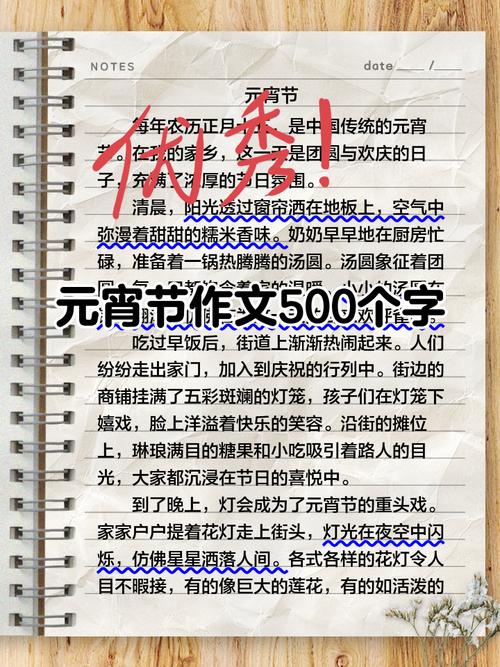 NOTES
date ____ / ____
元宵节
优秀！
每年农历正月十五，是中国传统的元宵
节。在我的家乡，这一天是团圆与欢庆的日
子，充满了浓厚的节日氛围。
清晨，阳光透过窗帘洒在地板上，空气中
弥漫着甜甜的糯米香味。奶奶早早地在厨房忙
碌，准备着一锅热腾腾的汤圆。汤圆象征着团
元宵节作文500个字
吃过早饭后，街道上渐渐热闹起来。人们
纷纷走出家门，加入到庆祝的行列中。街边的
商铺挂满了五彩斑斓的灯笼，孩子们在灯笼下
嬉戏，脸上洋溢着快乐的笑容。沿街的摊位
上，琳琅满目的糖果和小吃吸引着路人的目
光，大家都沉浸在节日的喜悦中。
到了晚上，灯会成为了元宵节的重头戏。
家家户户提着花灯走上街头，灯光在夜空中闪
烁，仿佛星星洒落人间。各式各样的花灯令人
目不暇接，有的像巨大的莲花，有的如活泼的